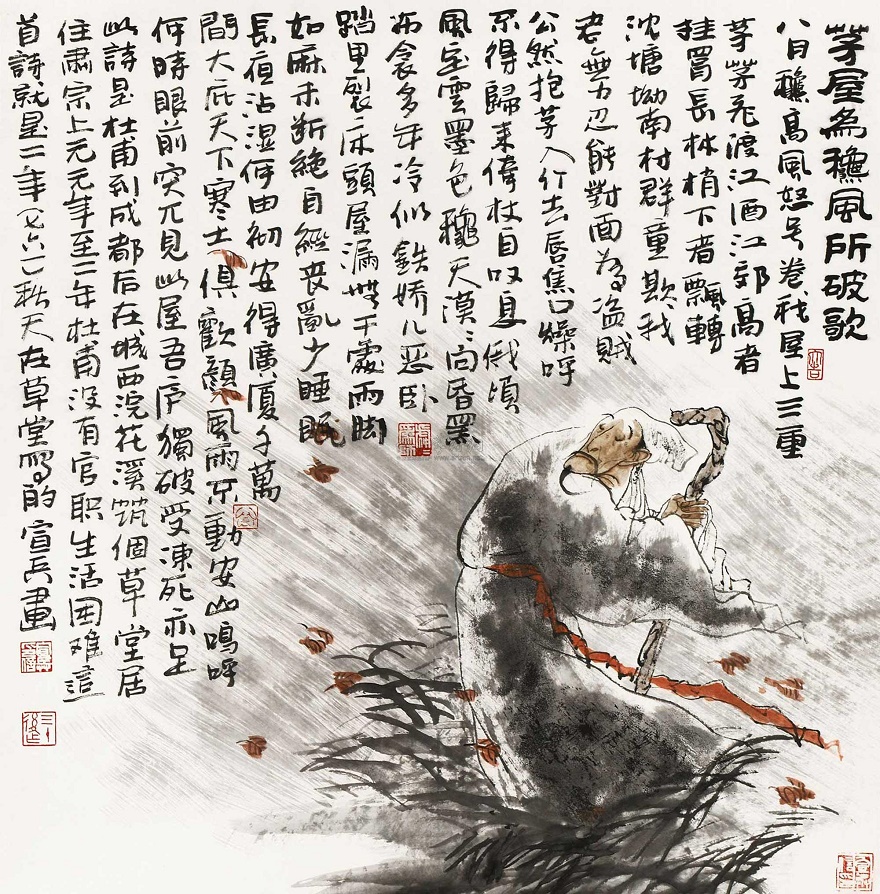 茅屋為龝風所破歌
八月龝高風怒号卷我屋上三重
茅茅飛渡江洒江郊高者
挂罥長林梢下者飄轉
沈塘坳南村群童欺我
老無力忍能對面為盗賊
公然抱茅入竹去唇焦口燥呼
不得歸来倚杖自叹息俄頃
風定雲墨色龝天漠〻向昏黑
布衾多年冷似鉄娇儿恶卧
踏里裂床頭屋漏無干處雨脚
如麻未断絶自經喪亂少睡眠
長夜沾湿何由彻安得廣厦千萬
間大庇天下寒士俱歡顔風雨不動安山嗚呼
何時眼前突兀見此屋吾庐獨破受凍死亦足
此詩是杜甫到成都后在城西浣花溪筑個草堂居
住肅宗上元元年至二年杜甫没有官职生活困难這
首詩就是二年七六一秋天在草堂寫的宣兵畫